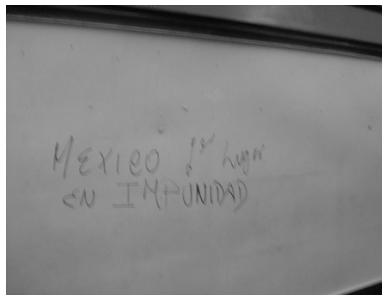 MEXICO 1er Lugar
EN IMPUNIDAD